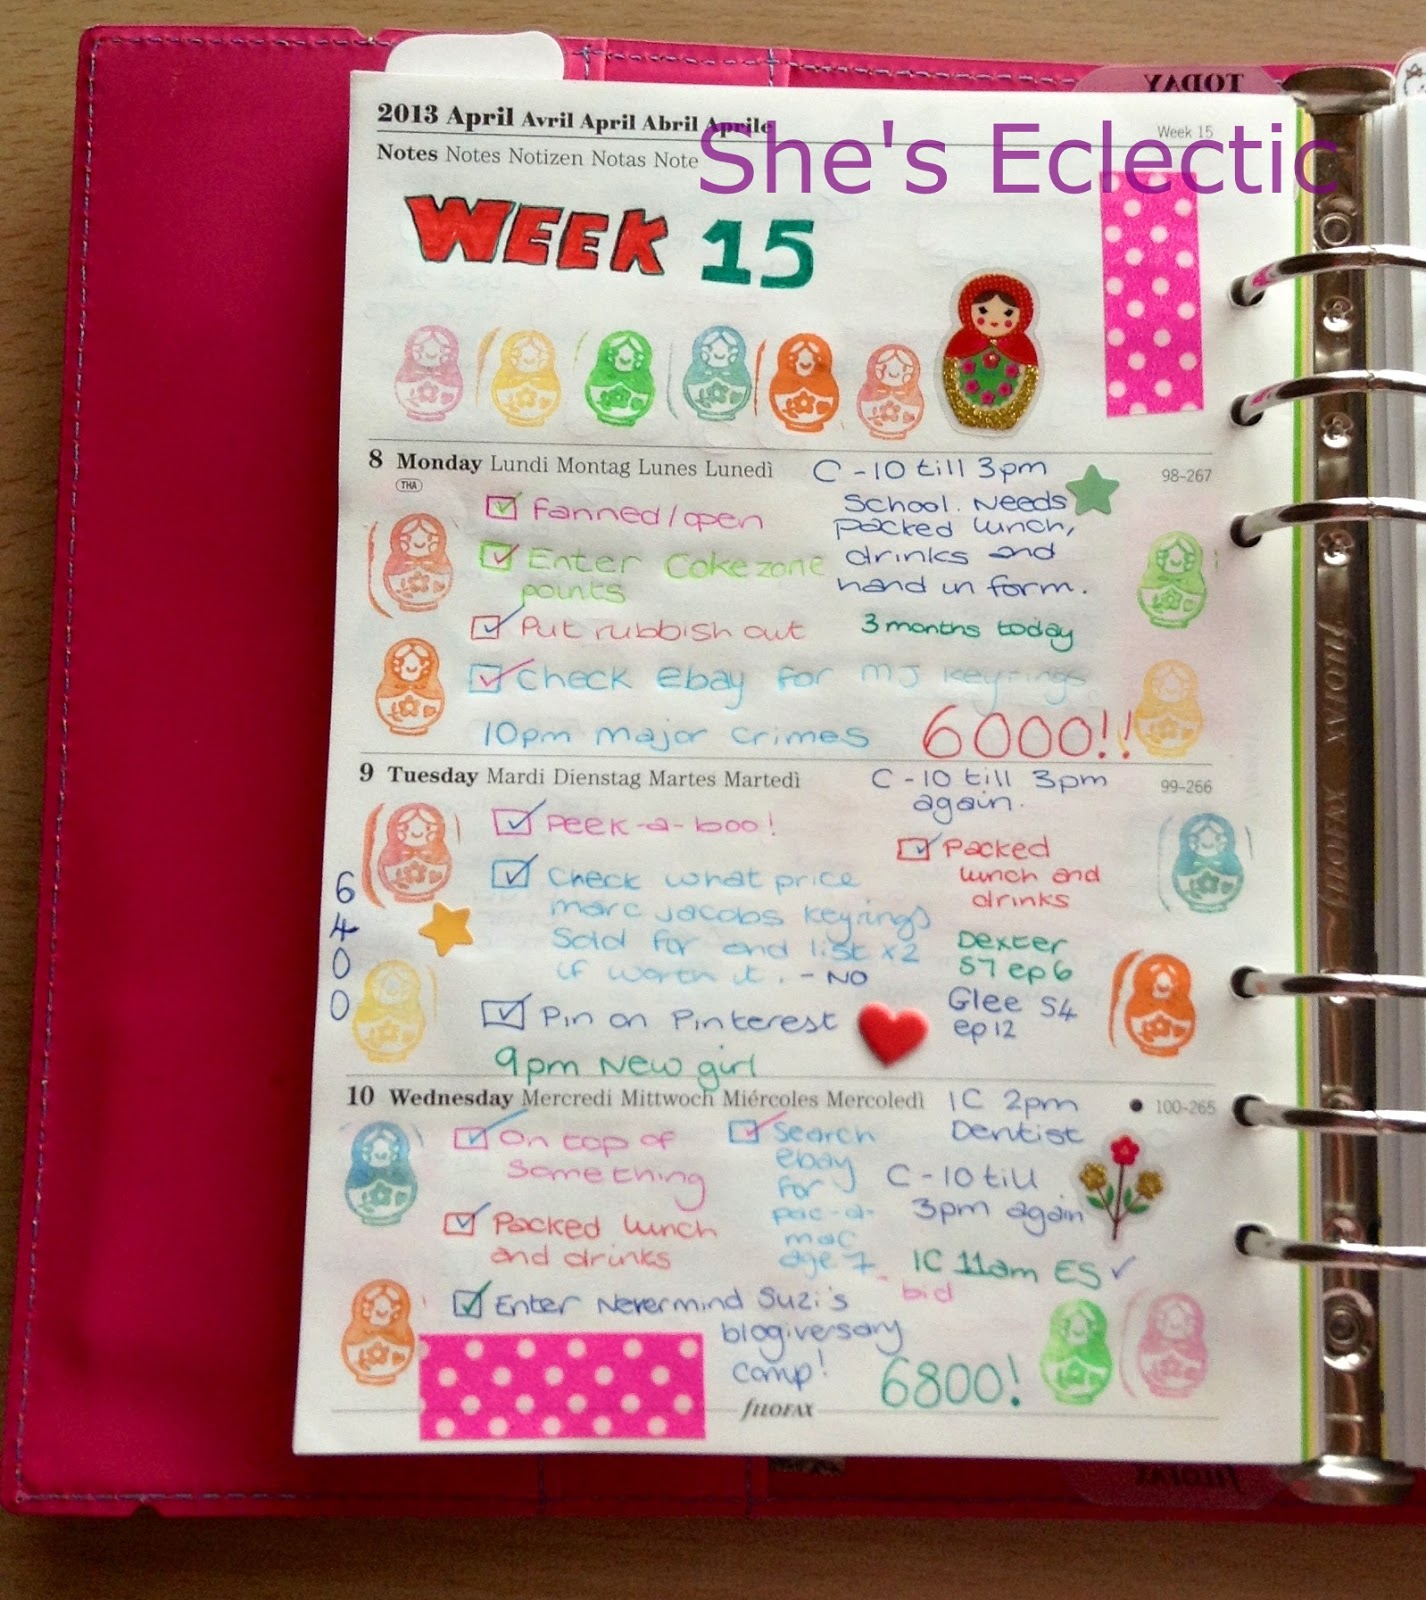 TODAY
2013 April Avril April Abril Aprile
Week 15
She's Eclectic
Notes Notes Notizen Notas Note
WEEK 15
8 Monday Lundi Montag Lunes Lunedì
98-267
THA
C - 10 till 3pm
School. Needs
packed lunch,
drinks and
hand in form.
Fanned/open
Enter Coke zone
points
Put rubbish out
3 months today
Check ebay for MJ keyrings
10pm Major Crimes
6000!!
9 Tuesday Mardi Dienstag Martes Martedì
99-266
C - 10 till 3pm
again.
Peek-a-boo!
Packed
lunch and
drinks
Check what price
marc jacobs keyrings
sold for and list x2
if worth it. - NO
6
4
0
0
Dexter
S7 ep 6
Glee S4
ep 12
Pin on Pinterest
9pm New girl
10 Wednesday Mercredi Mittwoch Miércoles Mercoledì
100-265
IC 2pm
Dentist
On top of
something
Search
ebay
for
pac-a-
mac
age 7
- bid
C - 10 till
3pm again
Packed lunch
and drinks
IC 11am ES ✓
Enter Nevermind Suzi's
blogiversary
comp!
6800!
fILOFAX
fILOFAX
fILOFAX